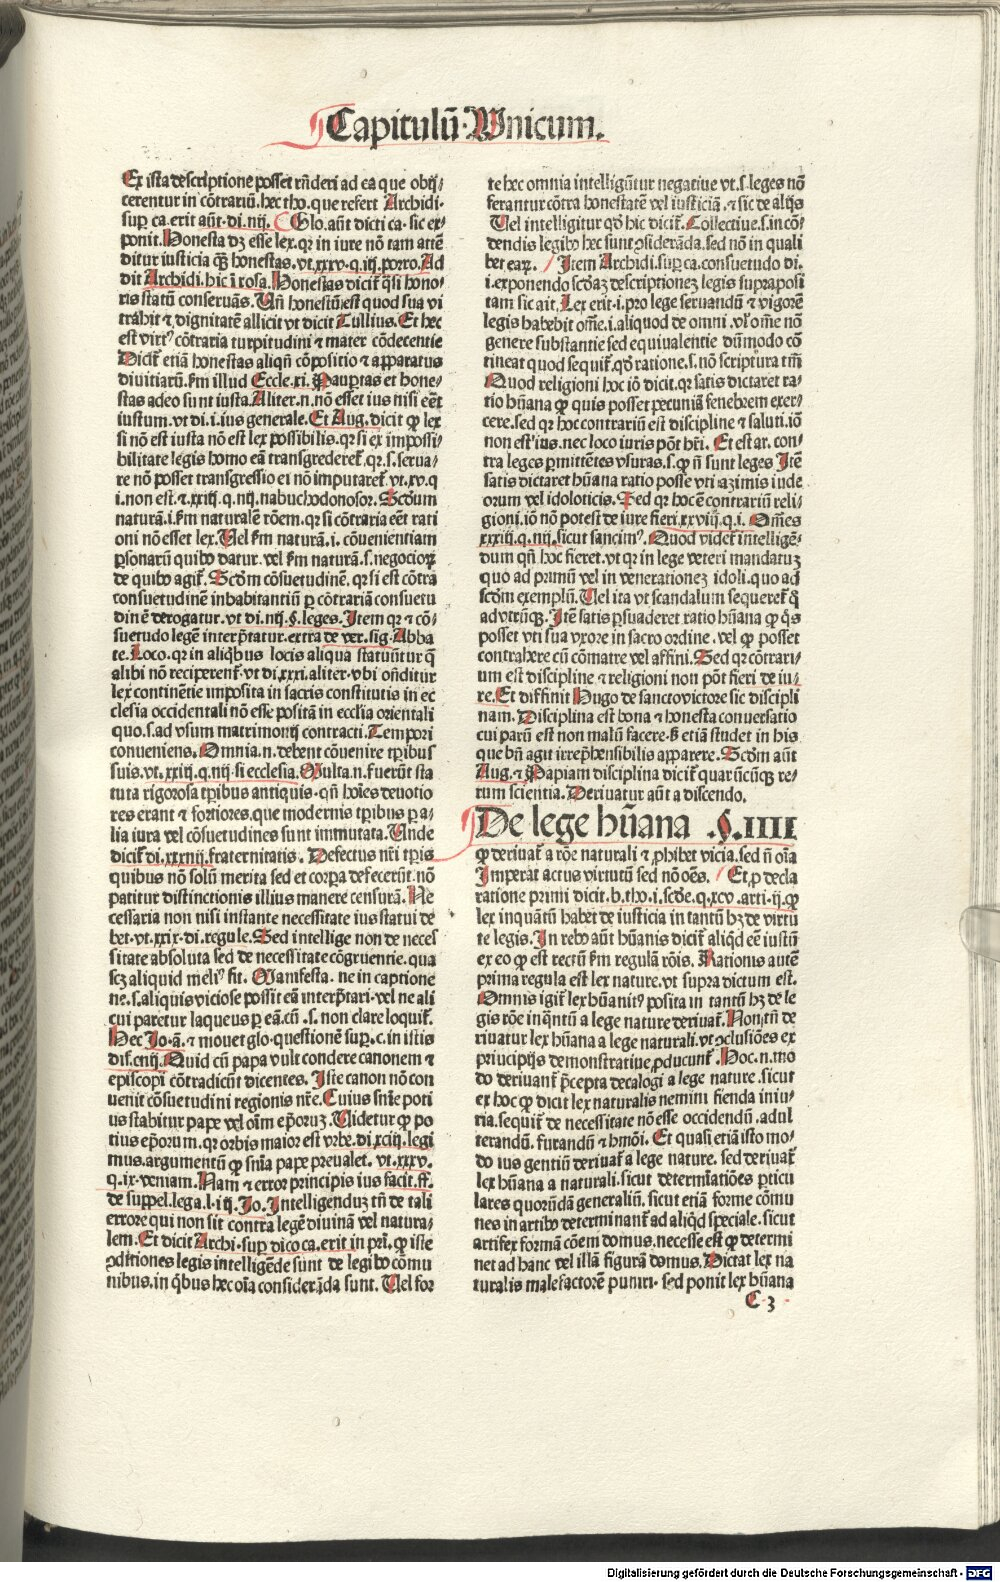 Capitulū·Vnicum.
Ex ista descriptione posset rn̄deri ad ea que obij⸗
cerentur in cōtrariū. hec tho. que refert Archidi.
sup ca. erit aūt. di. iiij. Glo. aūt dicti ca. sic ex⸗
ponit. Honesta dz esse lex. qr in iure nō tam attē
ditur iusticia qꝫ honestas. vt. xxxv. q. iij. porro. Ad
dit Archidi. hic ī rosa. Honestas dicit̄ q̄si hono⸗
ris statū conseruās. Vn̄ honestū est quod sua vi
trahit ⁊ dignitatē allicit vt dicit Tullius. Et hec
est virt⁹ cōtraria turpitudini ⁊ mater cōdecentie
Dicit̄ etiā honestas aliqn̄ cōpositio ⁊ apparatus
diuitiarū. ẜm illud Eccle. xi. Paup̄tas et hone⸗
stas a deo sunt iusta. Aliter. n. nō esset ius nisi eēt
iustum. vt di. i. ius generale. Et Aug. dicit ꝙ lex
si nō est iusta nō est lex possibilis. qr si ex impossi⸗
bilitate legis homo eā transgrederet̄. qr. s. serua⸗
re nō posset transgressio ei nō imputaret̄. vt. xv. q
i. non est. ⁊. xxiij. q. iiij. nabuchodonosor. Scdum
naturā. i. ẜm naturalē rōem. qr si cōtraria eēt rati
oni nō esset lex. Vel ẜm naturā. i. cōuenientiam
ꝑsonarū quibꝰ datur. vel ẜm naturā. s. negocioꝝ
de quibꝰ agit̄. Scdm cōsuetudinē. qr si est cōtra
consuetudinē inhabitantiū ꝑ cōtrariā consuetu
dinē derogatur. vt di. iiij. §. leges. Item qr ⁊ cō⸗
suetudo legē interp̄tatur. extra de ver. sig. Abba
te. Loco. qr in aliq̄bus locis aliqua statuūtur q̄
alibi nō reciperent̄. vt di. xxxi. aliter. vbi on̄ditur
lex continētie imposita in sacris constitutis in ec
clesia occidentali nō esse positā in ecclīa orientali
quo. s. ad vsum matrimonij contracti. Tempori
conueniens. Omnia. n. debent cōuenire tp̄ibus
suis. vt. xxiij. q. iiij. si ecclesia. Multa. n. fuerūt sta
tuta rigorosa tp̄ibus antiquis. qn̄ hoīes deuotio
res erant ⁊ fortiores. que modernis tp̄ibus ꝑ a⸗
lia iura vel cōsuetudines sunt immutata. Vnde
dicit̄ di. xxxiiij. fraternitatis. Defectus nr̄i tp̄is
quibus nō solū merita sed et corpa defecerūt. nō
patitur distinctionis illius manere censurā. Ne
cessaria non nisi instante necessitate ius statui de
bet. vt. xxix. di. regule. Sed intellige non de neces
sitate absoluta sed de necessitate cōgruentie. qua
scz aliquid meli⁹ fit. Manifesta. ne in captione
ne. s. aliquis viciose possit eā interp̄tari. vel ne ali
cui paretur laqueus ꝑ eā. cū .s. non clare loquit̄.
Hec Jo. ā. ⁊ mouet glo. questionē sup. c. in istis
dis. c. iiij. Quid cū papa vult condere canonem ⁊
episcopi cōtradicūt dicentes. Iste canon nō con
uenit cōsuetudini regionis nr̄e. Cuius snīe poti
us stabitur pape vel oīm ep̄oruz. Videtur ꝙ po
tius ep̄orum. qr orbis maior est vrbe. di. xciij. legi
mus. argumentū ꝙ snīa pape preualet. vt. xxxv.
q. ix. veniam. Nam ⁊ error principis ius facit. ff.
de suppel. lega. l. iij. Jo. Intelligenduz tn̄ de tali
errore qui non sit contra legē diuinā vel natura⸗
lem. Et dicit Archi. sup dicō ca. erit in pri. ꝙ iste
ꝯditiones legis intelligēde sunt de legibꝰ cōmu
nibus. in q̄bus hec oīa considerāda sunt. Vel for
te hec omnia intelligūtur negatiue vt. s. leges nō
ferantur cōtra honestatē vel iusticiā. ⁊ sic de alijs
Vel intelligitur qd̄ hic dicit̄. Collectiue. s. in cō⸗
dendis legibꝰ hec sunt ꝯsiderāda. sed nō in quali
bet eaꝝ. Item Archidi. sup. ca. consuetudo di.
i. exponendo scd̄az descriptionez legis supraposi
tam sic ait. Lex erit. i. pro lege seruandū ⁊ vigorē
legis habebit om̄e. i. aliquod de omni. vl̓ om̄e nō
genere substantie sed equiualentie dūmodo cō
tineat quod sequit̄. qd̄ ratione. s. nō scriptura tm̄
Quod religioni hoc iō dicit. qr satis dictaret ra⸗
tio hūana ꝙ quis posset pecuniā fenebrem exer⸗
cere. sed qr hoc contrariū est discipline ⁊ saluti. iō
non est ius. nec loco iuris pōt h̄ri. Et est ar. con⸗
tra leges ꝑmittētes vsuras. s. ꝙ n̄ sunt leges Itē
satis dictaret hūana ratio posse vti azimis iude
orum vel idoloticis. Sed qr hoc ē contrariū reli⸗
gioni. iō nō potest de iure fieri. xxviij. q. i. Omēs
xxxiij. q. iiij. sicut sancim⁹. Quod videt̄ intelligē⸗
dum qn̄ hoc fieret. vt qr in lege veteri mandatuz
quo ad primū vel in venerationez idoli. quo ad
scd̄m exemplū. Vel ita vt scandalum sequeret̄ q̄
ad vtrūqꝫ. Itē satis ꝑsuaderet ratio hūana ꝙ q̄s
posset vti sua vxore in sacro ordine. vel ꝙ posset
contrahere cū cōmatre vel affini. Sed qr cōtrari⸗
um est discipline ⁊ religioni non pōt fieri de iu⸗
re. Et diffinit Hugo de sancto victore sic discipli
nam. Disciplina est bona ⁊ honesta conuersatio
cui parū est non malū facere. ẜ etiā studet in his
que bn̄ agit irrep̄hensibilis apparere. Scdm aūt
Aug. ⁊ Papiam disciplina dicit̄ quarūcūqꝫ re⸗
rum scientia. Deriuatur aūt a discendo.
De lege hūana .§. IIII
ꝙ deriuat̄ a rōe naturali ⁊ ꝓhibet vicia. sed n̄ oīa
Imperat actus virtutū sed nō oēs. Et ꝓ decla
ratione primi dicit. b. tho. i. scd̄e. q. xcv. arti. ij. ꝙ
lex inquātū habet de iusticia in tantū hz de virtu
te legis. In rebꝰ aūt hūanis dicit̄ aliqd̄ eē iustū
ex eo ꝙ est rectū ẜm regulā rōis. Rationis autē
prima regula est lex nature. vt supra dictum est.
Omnis igit̄ lex hūanit⁹ posita in tantū hz de le
gis rōe inq̄ntū a lege nature deriuat̄. Non tn̄ de
riuatur lex hūana a lege naturali. vt ꝯclusiōes ex
principijs demonstratiue ꝓducunt̄. Hoc. n. mo
do deriuant̄ p̄cepta decalogi a lege nature. sicut
ex hoc ꝙ dicit lex naturalis nemini fienda iniu⸗
ria. sequit̄ de necessitate nō esse occidendū. adul
terandū. furandū ⁊ hmōi. Et quasi etiā isto mo⸗
do ius gentiū deriuat̄ a lege nature. sed deriuat̄
lex hūana a naturali. sicut determīatiōes ꝑticu
lares quorūdā generaliū. sicut etiā forme cōmu
nes in artibꝰ determinant̄ ad aliqd̄ speciale. sicut
artifex formā cōem domus. necesse est ꝙ determi
net ad hanc vel illā figurā domus. Dictat lex na
turalis malefactorē puniri. sed ponit lex hūana
C 3
Digitalisierung gefördert durch die Deutsche Forschungsgemeinschaft - DFG